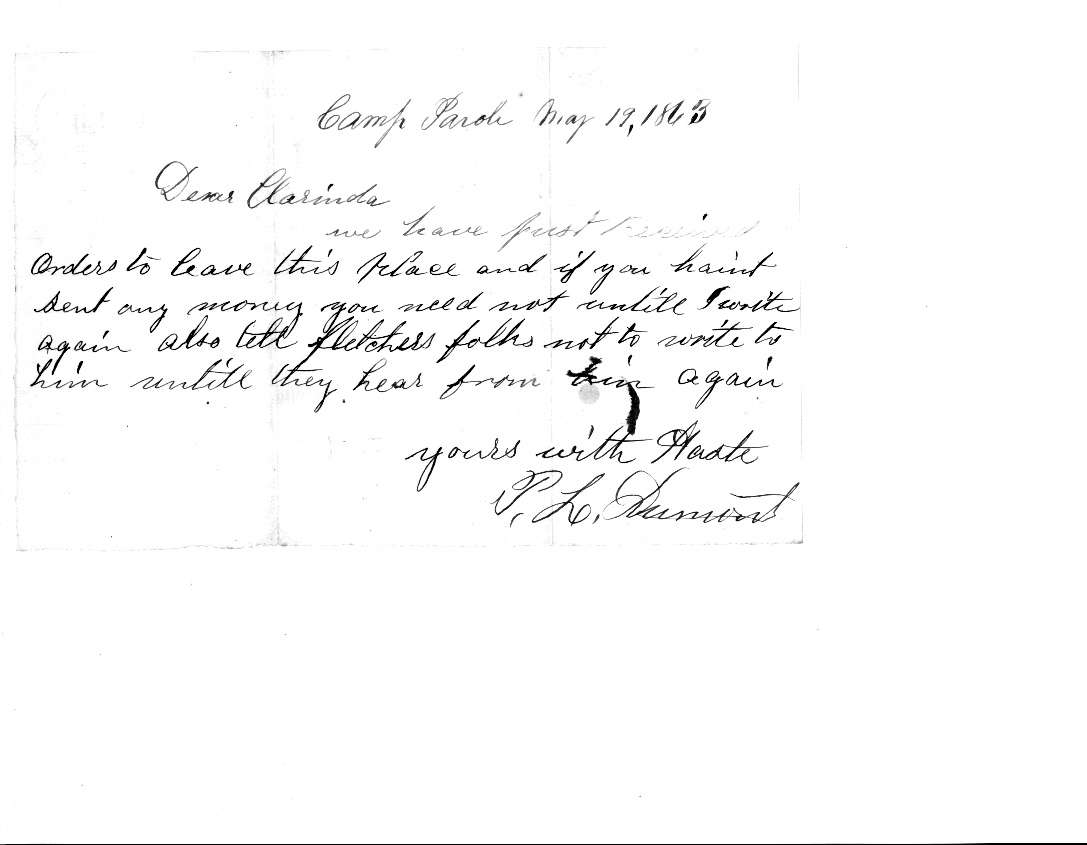 Camp Parole May 19, 1863
Dear Clarinda
we have just received
Orders to leave this place and if you haint
sent any money you need not untill I write
again also tell fletchers folks not to write to
him untill they hear from him again
yours with Haste
P. L. Dumont